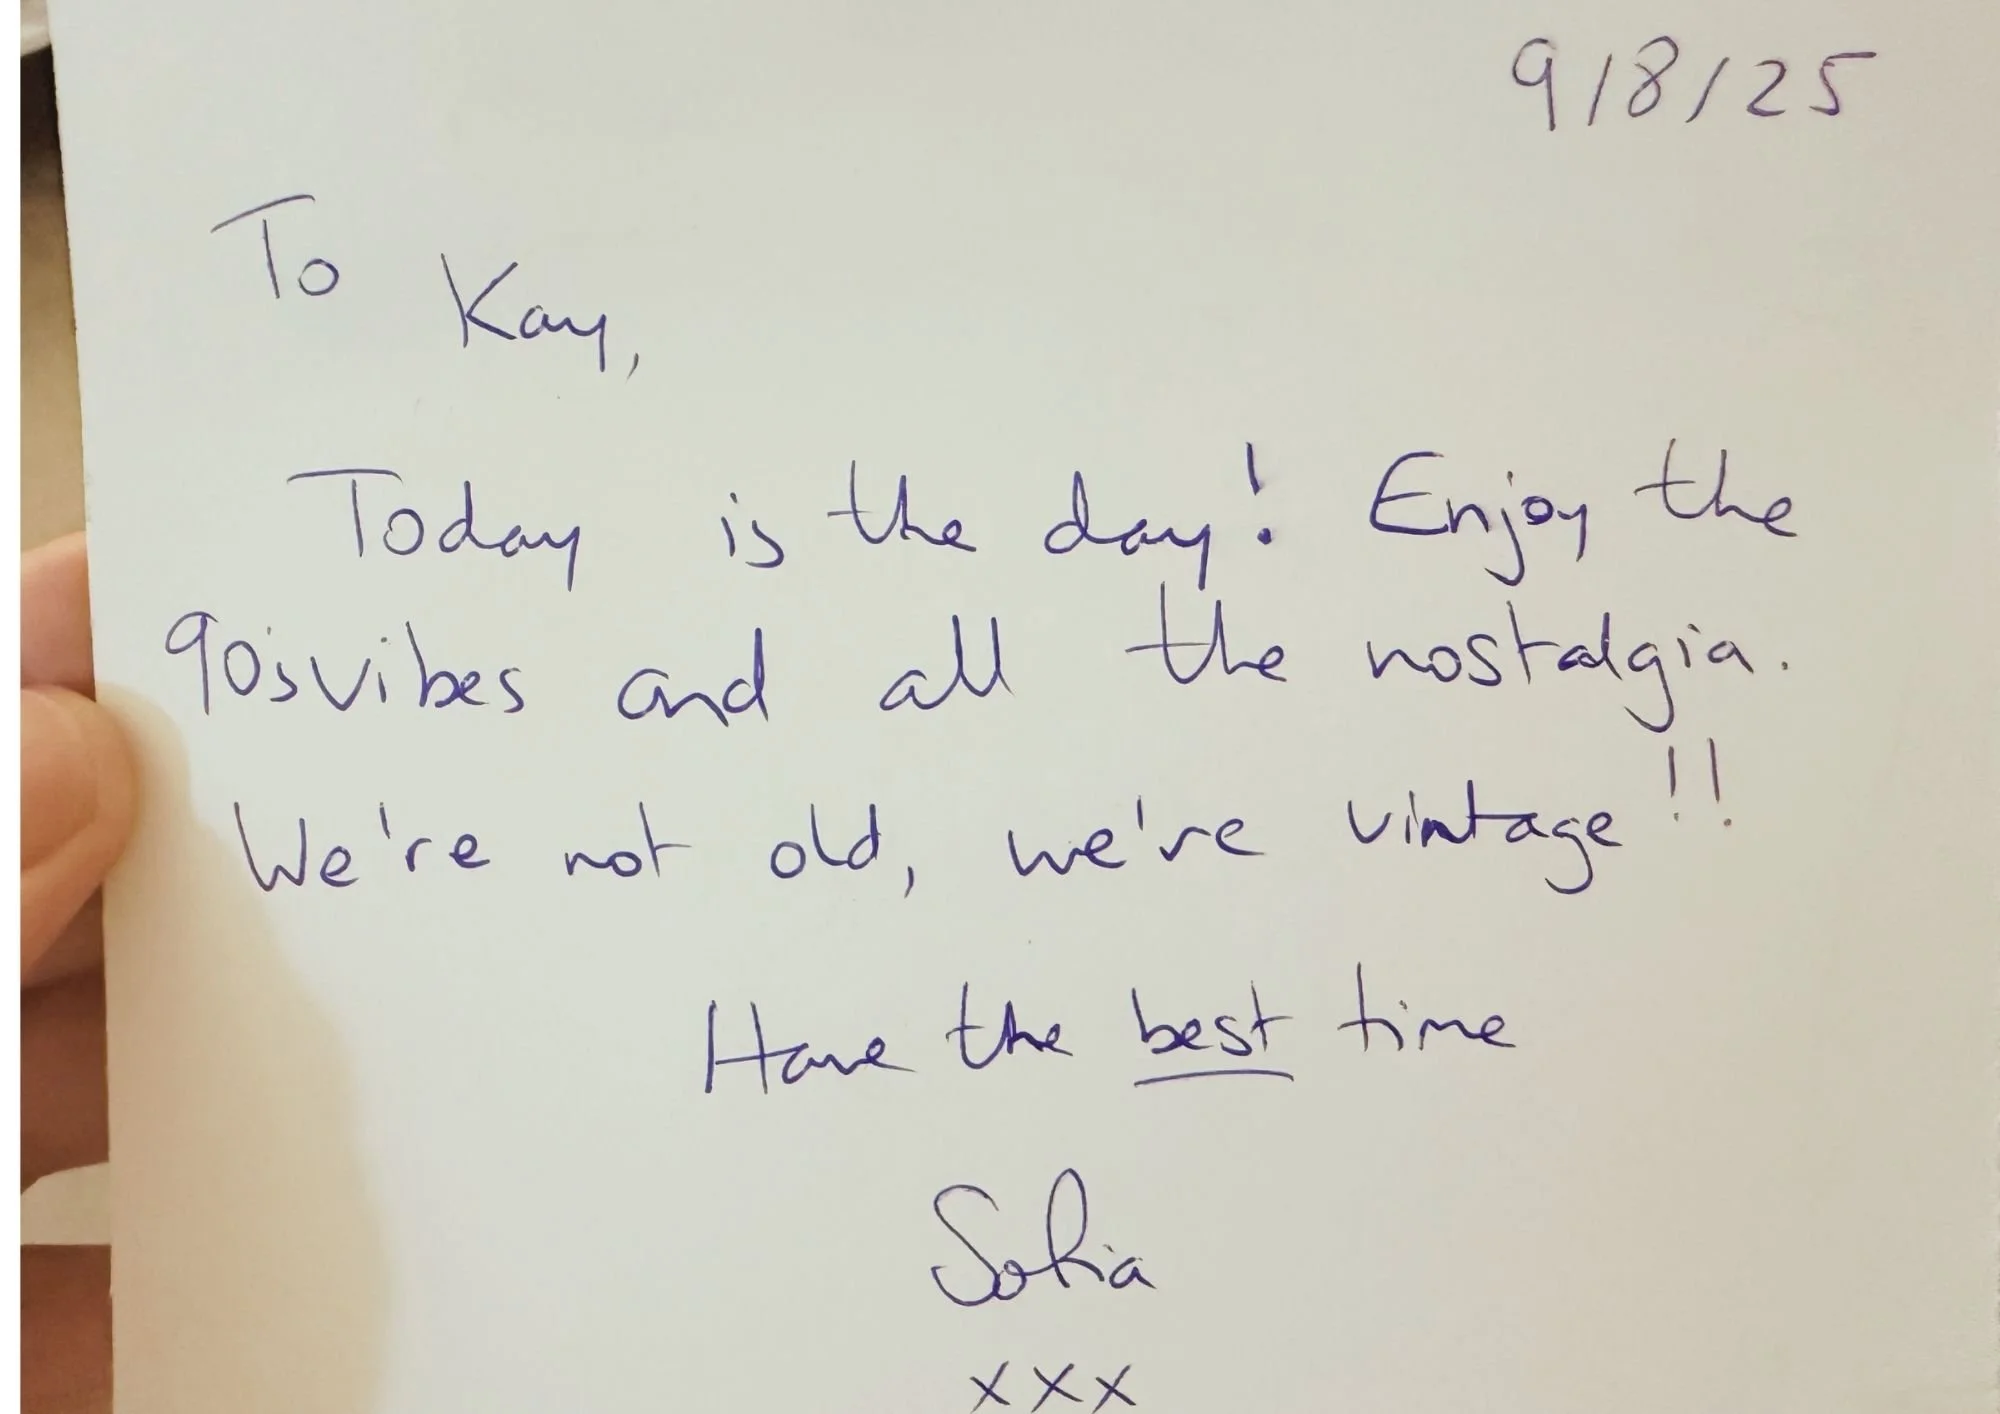 9/8/25
To Kay,
Today is the day! Enjoy the
90's vibes and all the nostalgia.
We're not old, we're vintage!!
Have the best time
Sofia
xxx